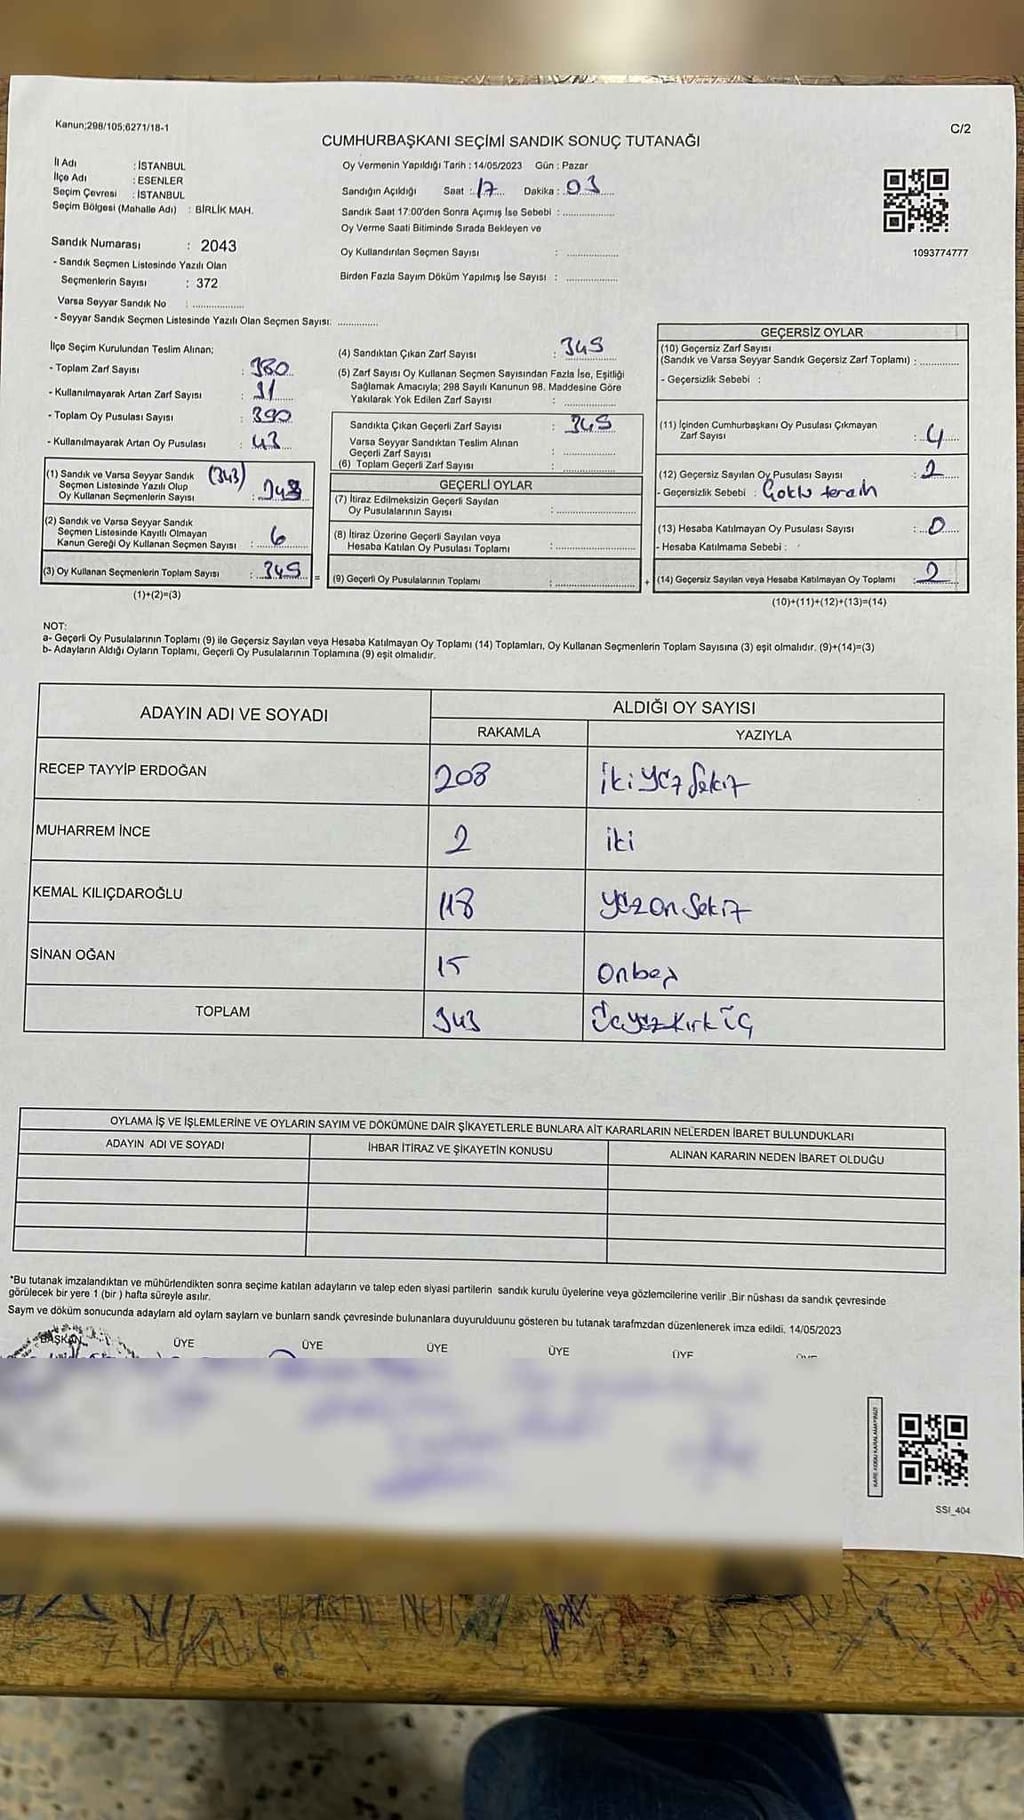 Kanun;298/105;6271/18-1
C/2
CUMHURBAŞKANI SEÇİMİ SANDIK SONUÇ TUTANAĞI
İl Adı : İSTANBUL
İlçe Adı : ESENLER
Seçim Çevresi : İSTANBUL
Seçim Bölgesi (Mahalle Adı) : BİRLİK MAH.
Oy Vermenin Yapıldığı Tarih : 14/05/2023 Gün : Pazar
Sandığın Açıldığı Saat : 17 Dakika : 03
Sandık Saat 17:00'den Sonra Açımış İse Sebebi :
Oy Verme Saati Bitiminde Sırada Bekleyen ve
Oy Kullandırılan Seçmen Sayısı :
Birden Fazla Sayım Döküm Yapılmış İse Sayısı :
1093774777
Sandık Numarası : 2043
- Sandık Seçmen Listesinde Yazılı Olan
Seçmenlerin Sayısı : 372
Varsa Seyyar Sandık No :
- Seyyar Sandık Seçmen Listesinde Yazılı Olan Seçmen Sayısı:
İlçe Seçim Kurulundan Teslim Alınan;
- Toplam Zarf Sayısı : 380
- Kullanılmayarak Artan Zarf Sayısı : 31
- Toplam Oy Pusulası Sayısı : 390
- Kullanılmayarak Artan Oy Pusulası : 43
(1) Sandık ve Varsa Seyyar Sandık (343)
Seçmen Listesinde Yazılı Olup
Oy Kullanan Seçmenlerin Sayısı :
(2) Sandık ve Varsa Seyyar Sandık
Seçmen Listesinde Kayıtlı Olmayan
Kanun Gereği Oy Kullanan Seçmen Sayısı : 6
(3) Oy Kullanan Seçmenlerin Toplam Sayısı : 349
(1)+(2)=(3)
(4) Sandıktan Çıkan Zarf Sayısı : 349
(5) Zarf Sayısı Oy Kullanan Seçmen Sayısından Fazla İse, Eşitliği
Sağlamak Amacıyla; 298 Sayılı Kanunun 98. Maddesine Göre
Yakılarak Yok Edilen Zarf Sayısı :
Sandıkta Çıkan Geçerli Zarf Sayısı : 349
Varsa Seyyar Sandıktan Teslim Alınan
Geçerli Zarf Sayısı :
(6) Toplam Geçerli Zarf Sayısı :
GEÇERLİ OYLAR
(7) İtiraz Edilmeksizin Geçerli Sayılan
Oy Pusulalarının Sayısı :
(8) İtiraz Üzerine Geçerli Sayılan veya
Hesaba Katılan Oy Pusulası Toplamı :
(9) Geçerli Oy Pusulalarının Toplamı :
GEÇERSİZ OYLAR
(10) Geçersiz Zarf Sayısı
(Sandık ve Varsa Seyyar Sandık Geçersiz Zarf Toplamı) :
- Geçersizlik Sebebi :
(11) İçinden Cumhurbaşkanı Oy Pusulası Çıkmayan
Zarf Sayısı : 4
(12) Geçersiz Sayılan Oy Pusulası Sayısı : 2
- Geçersizlik Sebebi : Çoklu tercih
(13) Hesaba Katılmayan Oy Pusulası Sayısı : 0
- Hesaba Katılmama Sebebi :
(14) Geçersiz Sayılan veya Hesaba Katılmayan Oy Toplamı : 2
(10)+(11)+(12)+(13)=(14)
NOT:
a- Geçerli Oy Pusulalarının Toplamı (9) ile Geçersiz Sayılan veya Hesaba Katılmayan Oy Toplamı (14) Toplamları, Oy Kullanan Seçmenlerin Toplam Sayısına (3) eşit olmalıdır. (9)+(14)=(3)
b- Adayların Aldığı Oyların Toplamı, Geçerli Oy Pusulalarının Toplamına (9) eşit olmalıdır.
ADAYIN ADI VE SOYADI ALDIĞI OY SAYISI
RAKAMLA YAZIYLA
RECEP TAYYİP ERDOĞAN 208 İki yüz sekiz
MUHARREM İNCE 2 iki
KEMAL KILIÇDAROĞLU 118 yüz on sekiz
SİNAN OĞAN 15 onbeş
TOPLAM 343 Üçyüz kırk üç
OYLAMA İŞ VE İŞLEMLERİNE VE OYLARIN SAYIM VE DÖKÜMÜNE DAİR ŞİKAYETLERLE BUNLARA AİT KARARLARIN NELERDEN İBARET BULUNDUKLARI
ADAYIN ADI VE SOYADI İHBAR İTİRAZ VE ŞİKAYETİN KONUSU ALINAN KARARIN NEDEN İBARET OLDUĞU
*Bu tutanak imzalandıktan ve mühürlendikten sonra seçime katılan adayların ve talep eden siyasi partilerin sandık kurulu üyelerine veya gözlemcilerine verilir .Bir nüshası da sandık çevresinde
görülecek bir yere 1 (bir ) hafta süreyle asılır.
Saym ve döküm sonucunda adaylarn ald oylarn saylarn ve bunlarn sandk çevresinde bulunanlara duyurulduunu gösteren bu tutanak tarafmzdan düzenlenerek imza edildi. 14/05/2023
BAŞKAN ÜYE ÜYE ÜYE ÜYE ÜYE
SSI_404